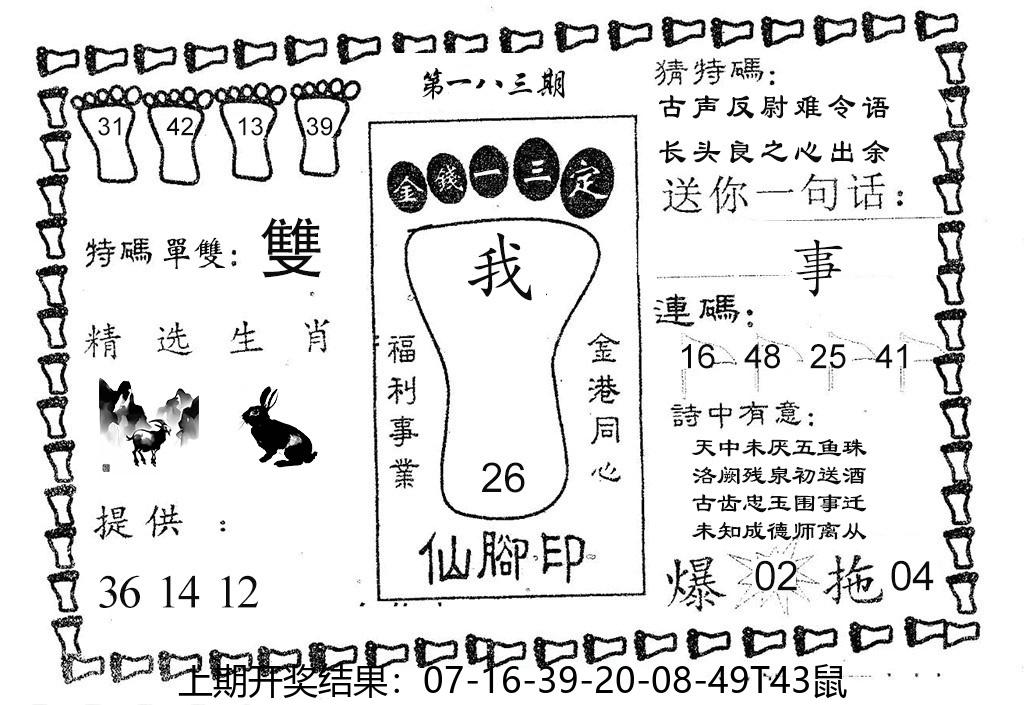 第一八三期
31 42 13 39
特碼單雙：雙
精选生肖
提供：
36 14 12
金錢一三定
我
福利事業
金港同心
26
仙腳印
猜特碼：
古声反尉难令语
长头良之心出余
送你一句话：
事
連碼：
16 48 25 41
詩中有意：
天中未厌五鱼珠
洛阙残泉初送酒
古齿忠玉围事迁
未知成德师离从
爆 02 拖 04
上期开奖结果：07-16-39-20-08-49T43鼠